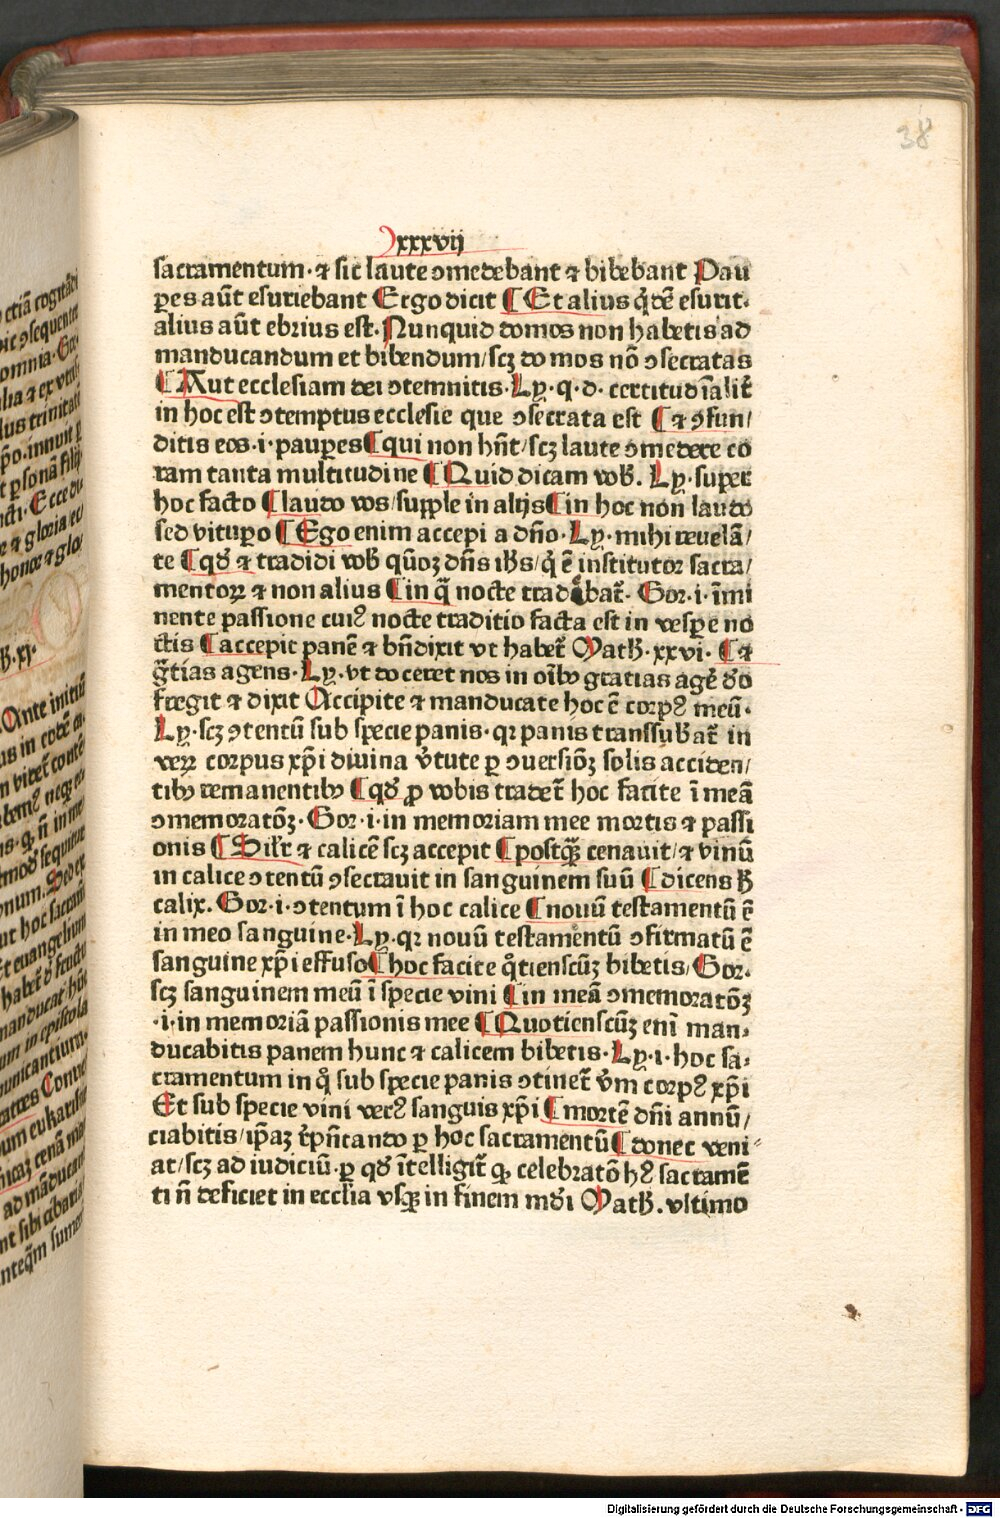 38
xxxvij
sacramentum· ⁊ sic laute ꝯmedebant ⁊ bibebant Pau
ꝑes aūt esuriebant Ergo dicit ¶ Et alius qͥdē esurit·
alius aūt ebrius est· Nunquid domos non habetis ad
manducandum et bibendum/scꝫ do mos nō ꝯsecratas
¶ Aut ecclesiam dei ꝯtemnitis· Ly· q· d· certitudīalit̄
in hoc est ꝯtemptus ecclesie que ꝯsecrata est ¶ ⁊ ꝯfun/
ditis eos·i·pauꝑes ¶ qui non hn̄t/scꝫ laute ꝯmedere co
ram tanta multitudine ¶ Quid dicam vob̄· Ly· super
hoc facto ¶ laudo vos/supple in alijs ¶ in hoc non laudo
sed vituꝑo ¶ Ego enim accepi a dn̄o· Ly· mihi reuelā/
te ¶ qd̄ ⁊ tradidi vob̄ qūoꝫ dn̄s ih̄s/qͥ ē institutor sacra/
mentoꝝ ⁊ non alius ¶ in q̄ nocte tradebat̄· Gor·i·īmi
nente passione cuiꝰ nocte traditio facta est in vesꝑe no
ctis ¶ accepit panē ⁊ bn̄dixit vt habet̄ Math̄·xxvi· ¶ ⁊
gr̄tias agens· Ly· vt doceret nos in oībꝰ gratias agē d̄o
fregit ⁊ dixit Accipite ⁊ manducate hoc ē corpꝰ meū·
Ly·scꝫ ꝯtentū sub specie panis·qꝛ panis transsub̄at̄ in
veꝝ corpus xp̄i diuina v̄tute ꝑ ꝯuersiōꝫ solis acciden/
tibꝰ remanentibꝰ ¶ qd̄ ꝓ vobis tradet̄ hoc facite ī meā
ꝯmemoratōꝫ· Gor·i·in memoriam mee mortis ⁊ passi
onis ¶ Sil̄r ⁊ calicē scꝫ accepit ¶ postq̄ꝫ cenauit/⁊ vinū
in calice ꝯtentū ꝯsecrauit in sanguinem suū ¶ dicens h̄
calix. Gor·i·ꝯtentum ī hoc calice ¶ nouū testamentū ē
in meo sanguine· Ly·qꝛ nouū testamentū ꝯfirmatū ē
sanguine xp̄i effuso ¶ hoc facite qͦtienscūꝫ bibetis/ Gor·
scꝫ sanguinem meū ī specie vini ¶ in meā ꝯmemoratōꝫ
·i·in memoriā passionis mee ¶ Quotienscūꝫ enī man/
ducabitis panem hunc ⁊ calicem bibetis· Ly·i·hoc sa/
cramentum in qͦ sub specie panis ꝯtinet̄ v̄m corpꝰ xp̄i
Et sub specie vini verꝰ sanguis xp̄i ¶ mortē dn̄i annū/
ciabitis/ip̄aꝫ r̄pn̄tando ꝑ hoc sacramentū ¶ donec veni⸗
at/scꝫ ad iudiciū·ꝑ qd̄ ītelligit̄ ꝙ celebratō hꝰ sacramē
ti n̄ deficiet in eccl̄ia vsqꝫ in finem mūdi Math̄.vltimo
Digitalisierung gefördert durch die Deutsche Forschungsgemeinschaft - DFG